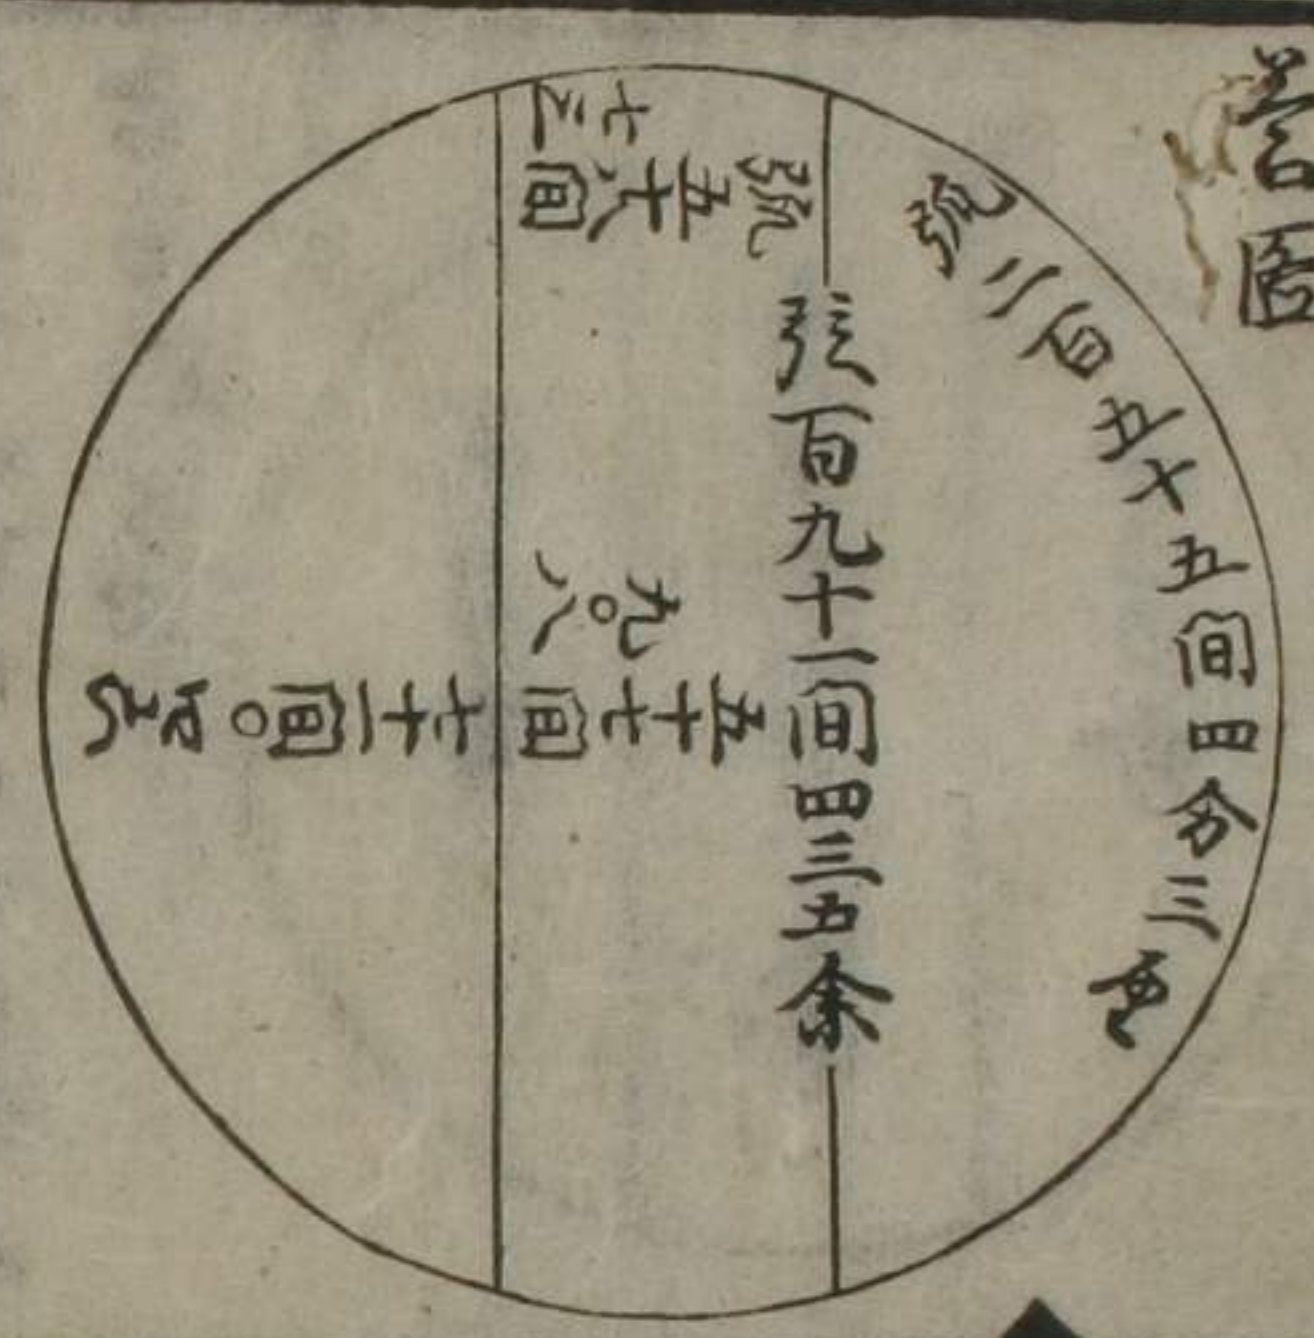 荅圖
弧二百五十五間四分三厘
弦百九十一間四三五余
弧五十八間七三
五十七間九〇八
七十一間〇四六